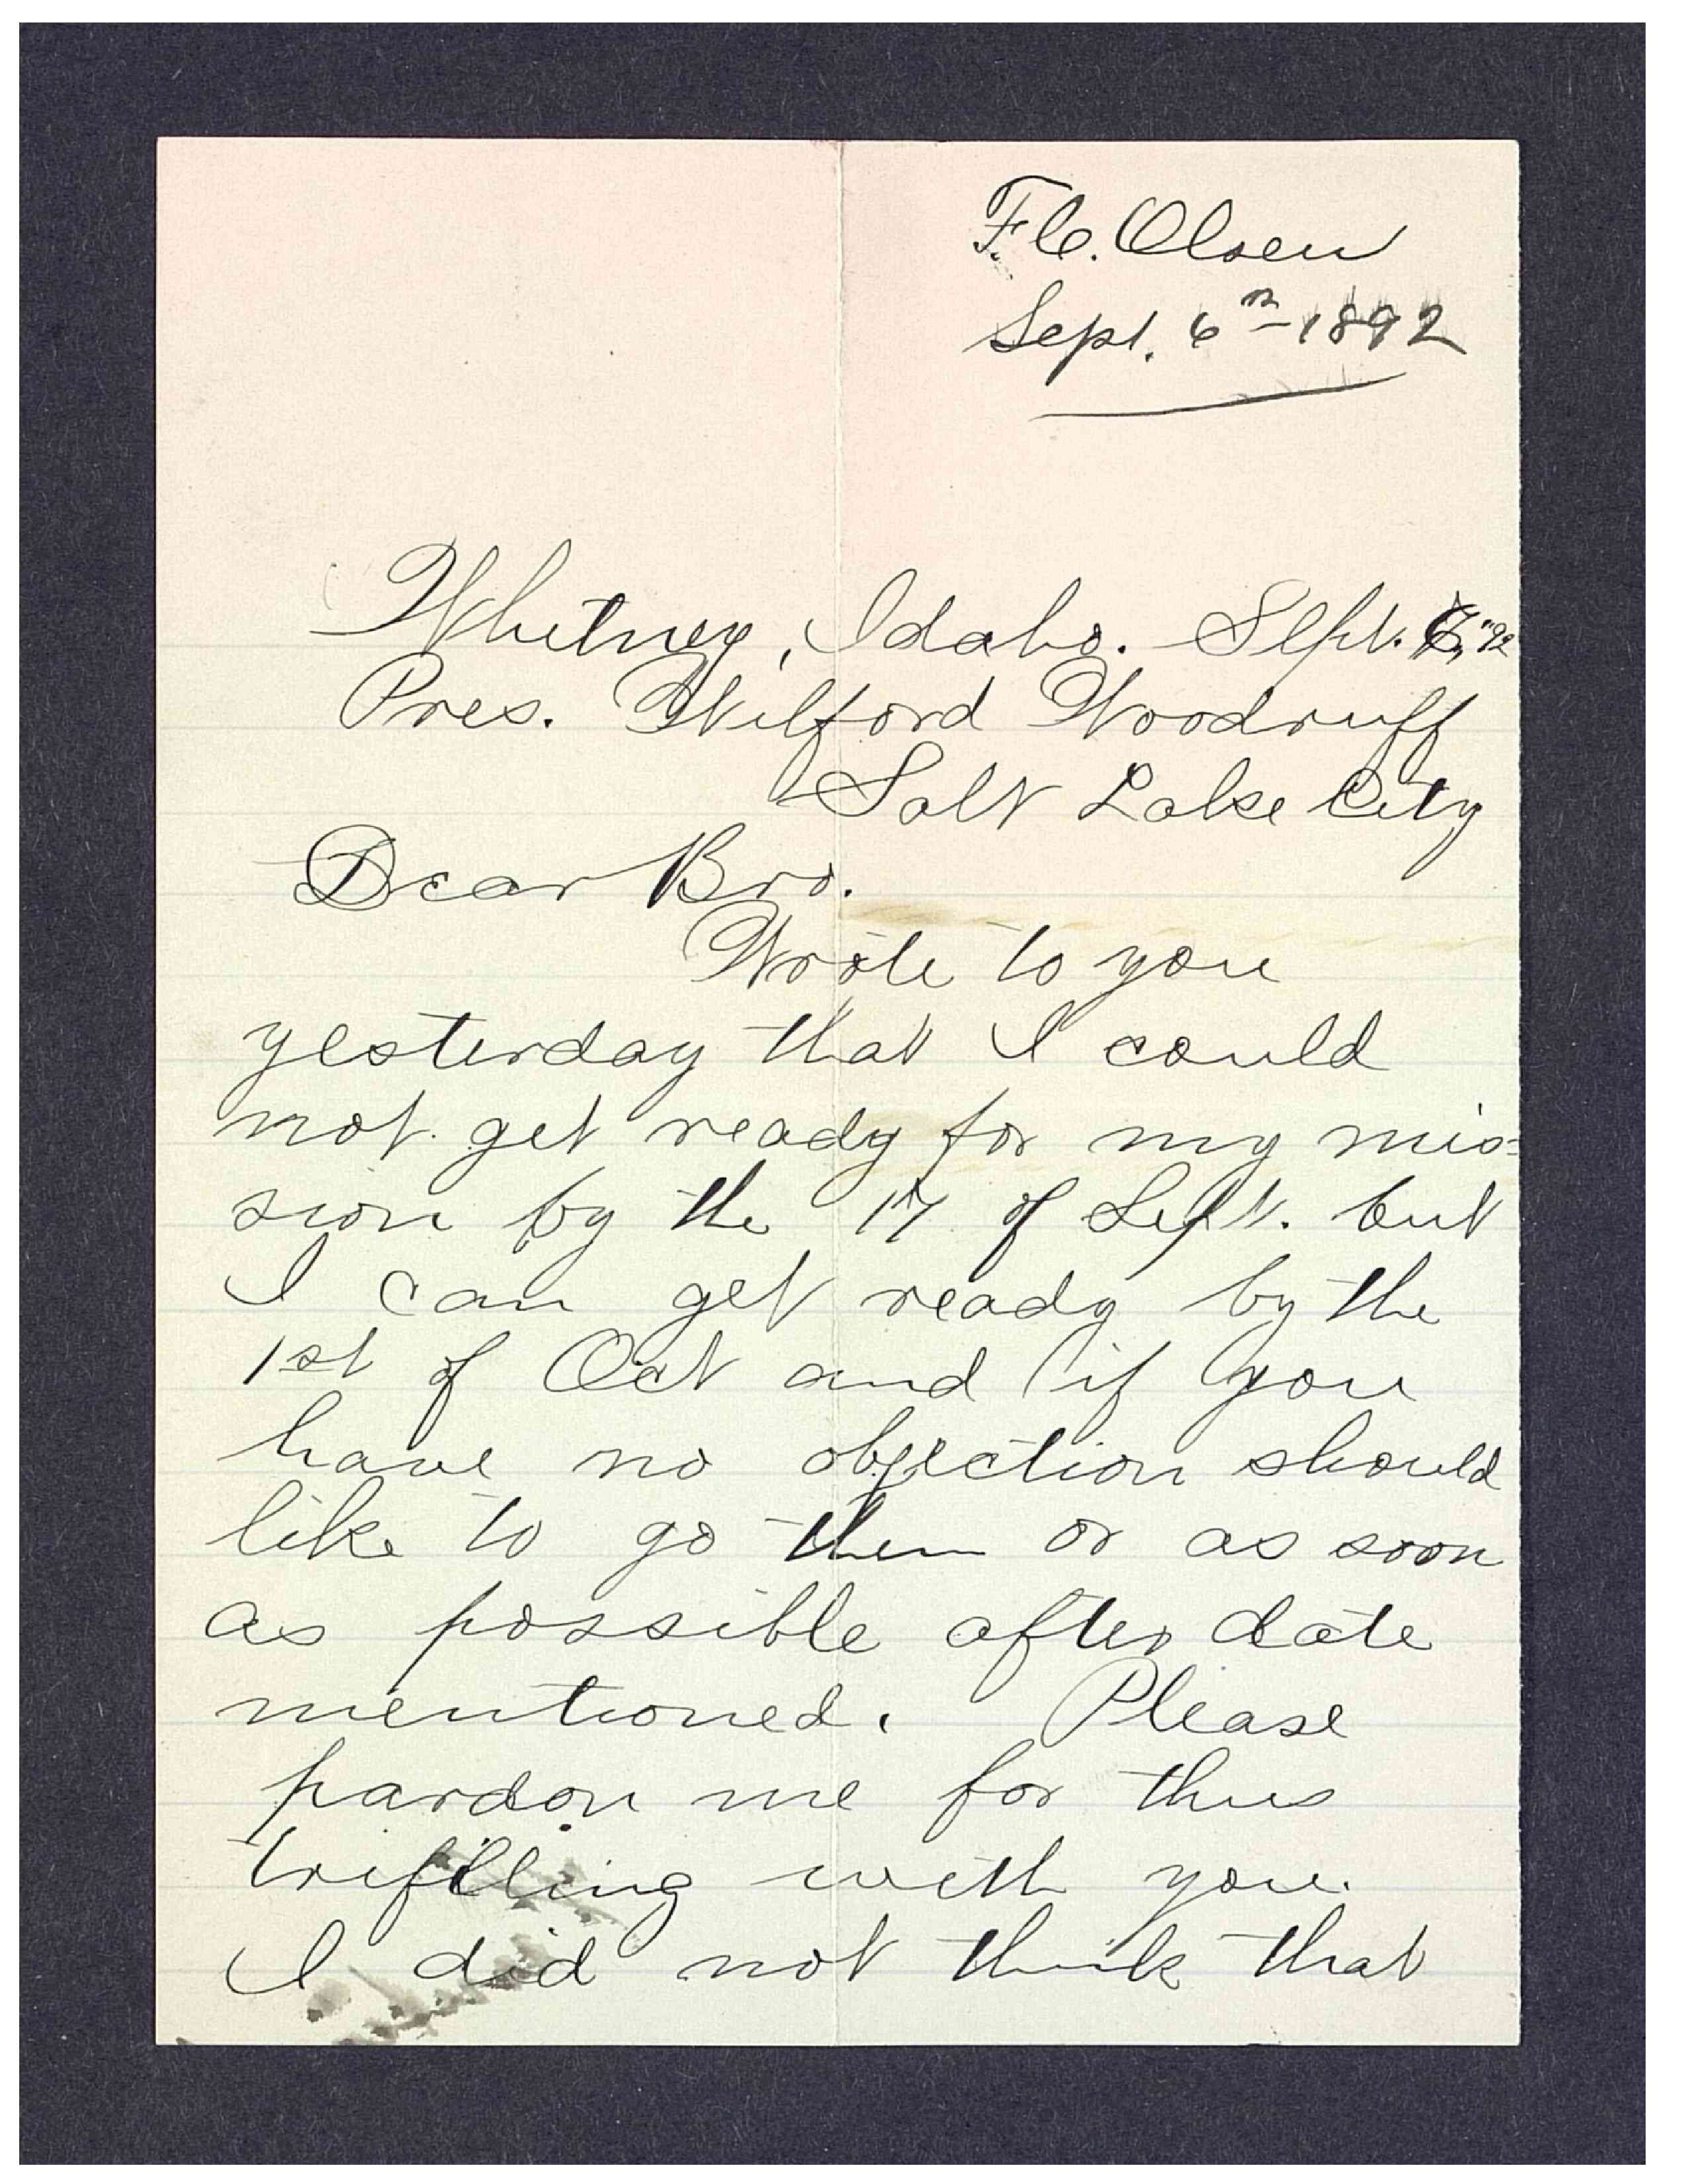 F. C. Olsen
Sept. 6th 1892
Whitney, Idaho. Sept. 6, "92
Pres. Wilford Woodruff
Salt Lake City
Dear Bro.
Wrote to you
yesterday that I could
not get ready for my mis-
sion by the 17 of Sept. but
I can get ready by the
1st of Oct and if you
have no objection should
like to go then or as soon
as possible after date
mentioned. Please
pardon me for thus
trifling with you.
I did not think that